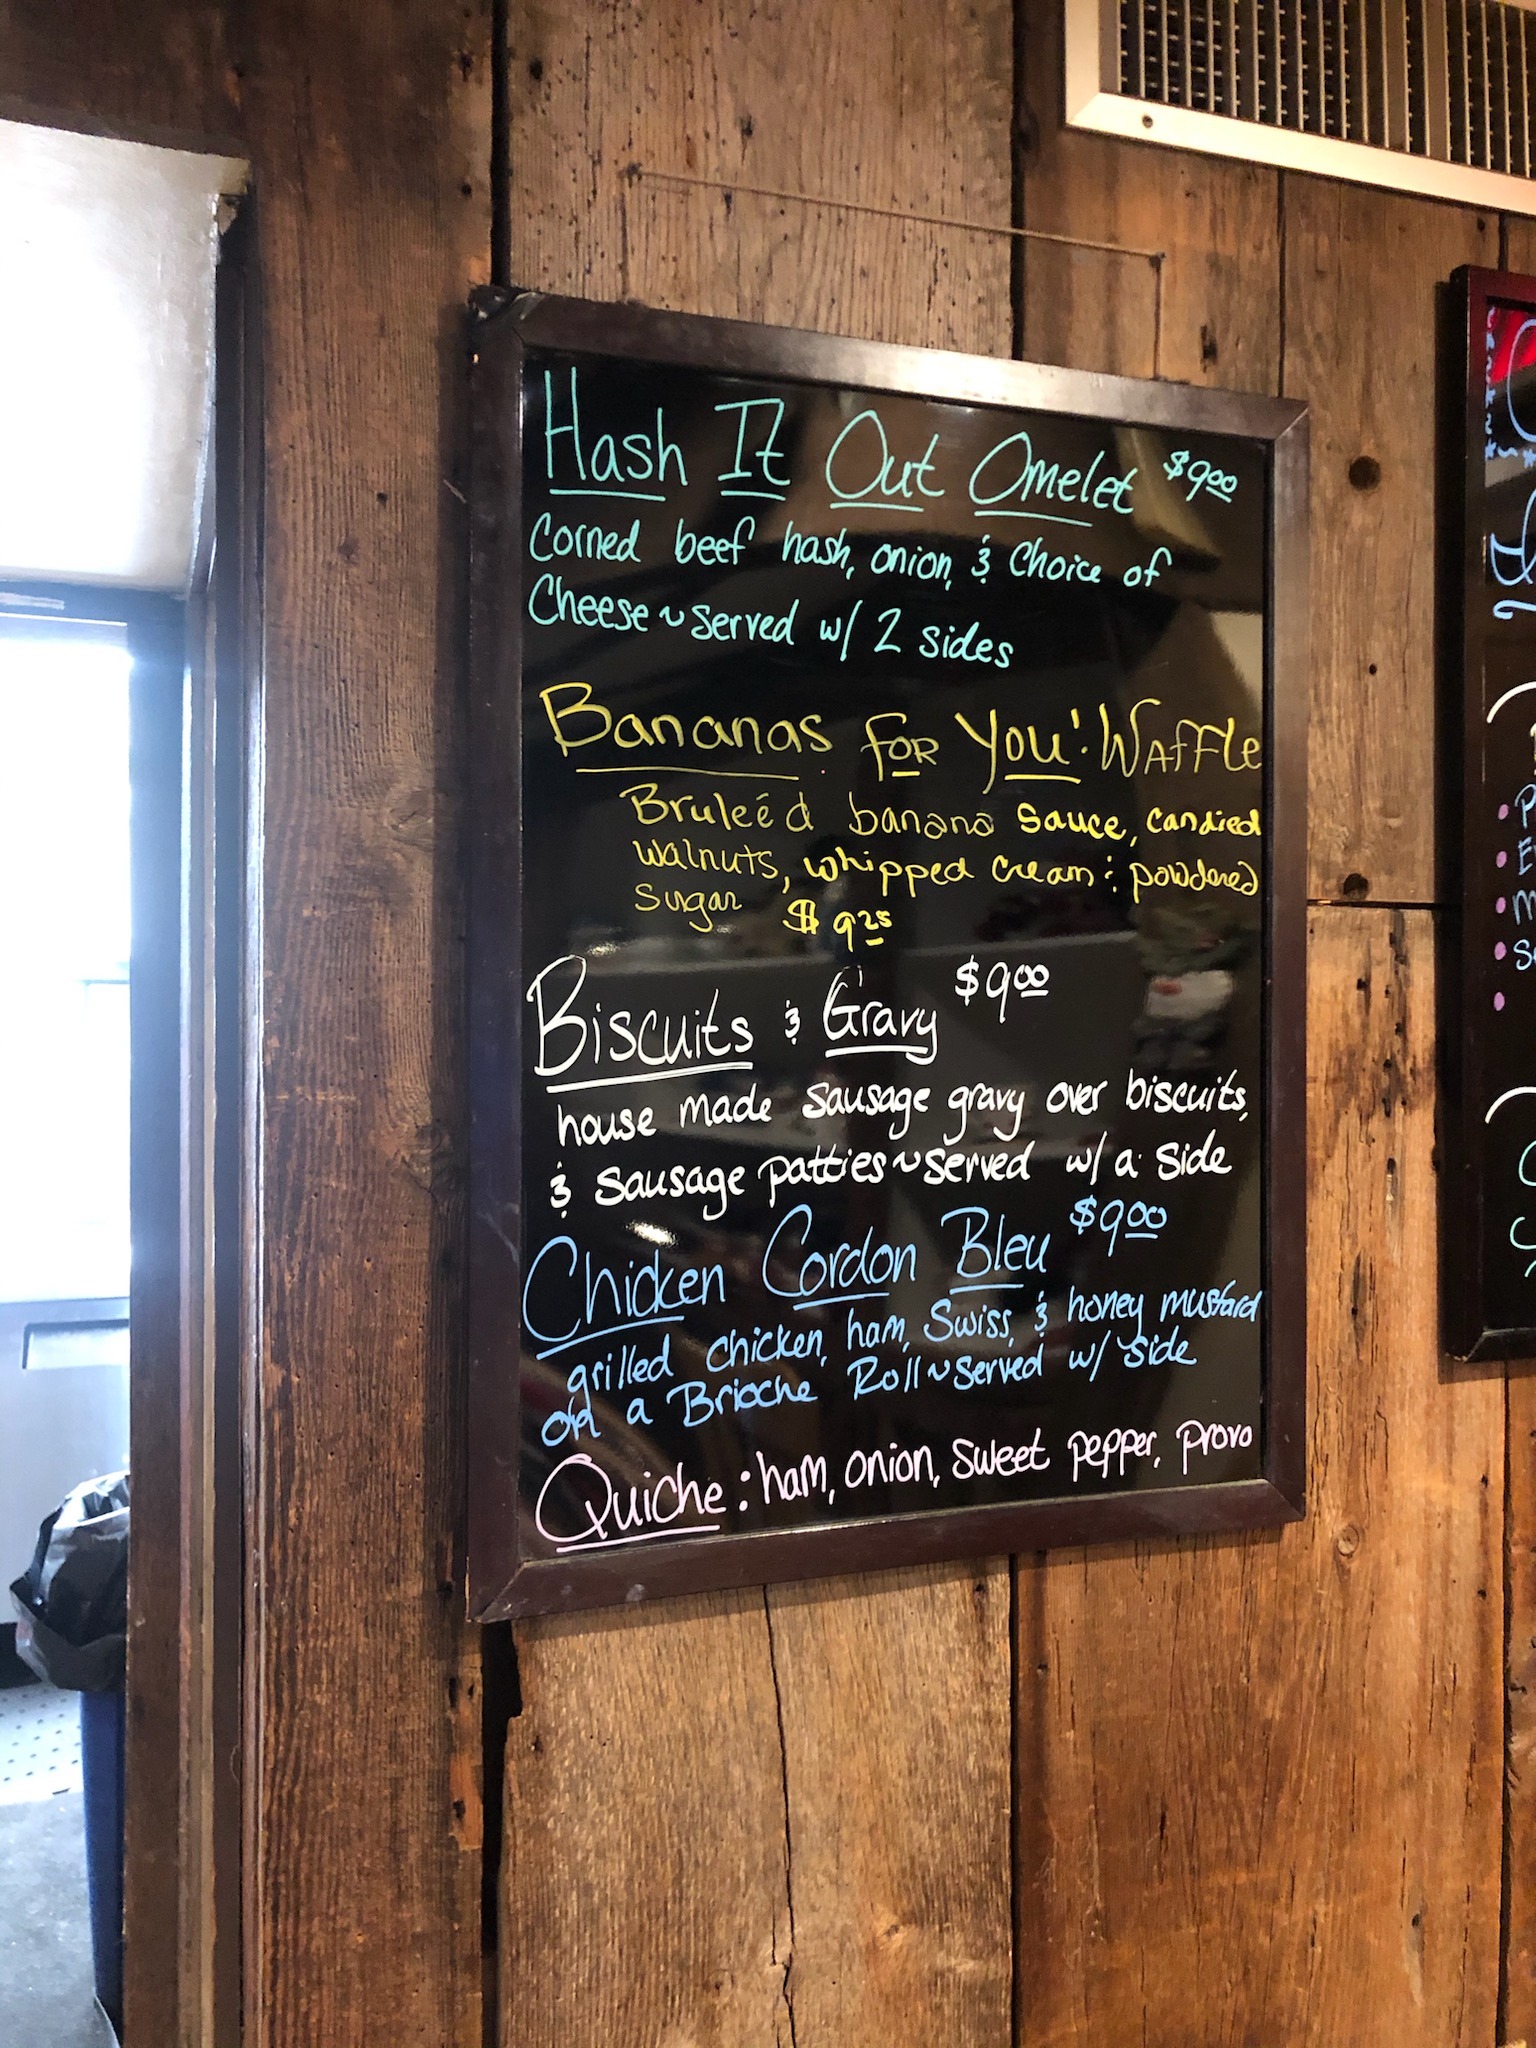 Hash It Out Omelet $9.00
Corned beef hash, onion, & Choice of
Cheese ~ Served w/ 2 sides
Bananas FOR You! WAFFLE
Bruleéd banana sauce, candied
walnuts, whipped cream & powdered
sugar $9.25
Biscuits & Gravy $9.00
house made sausage gravy over biscuits,
& sausage patties ~ served w/ a side
Chicken Cordon Bleu $9.00
grilled chicken, ham, Swiss, & honey mustard
on a Brioche Roll ~ served w/ side
Quiche: ham, onion, sweet pepper, provo